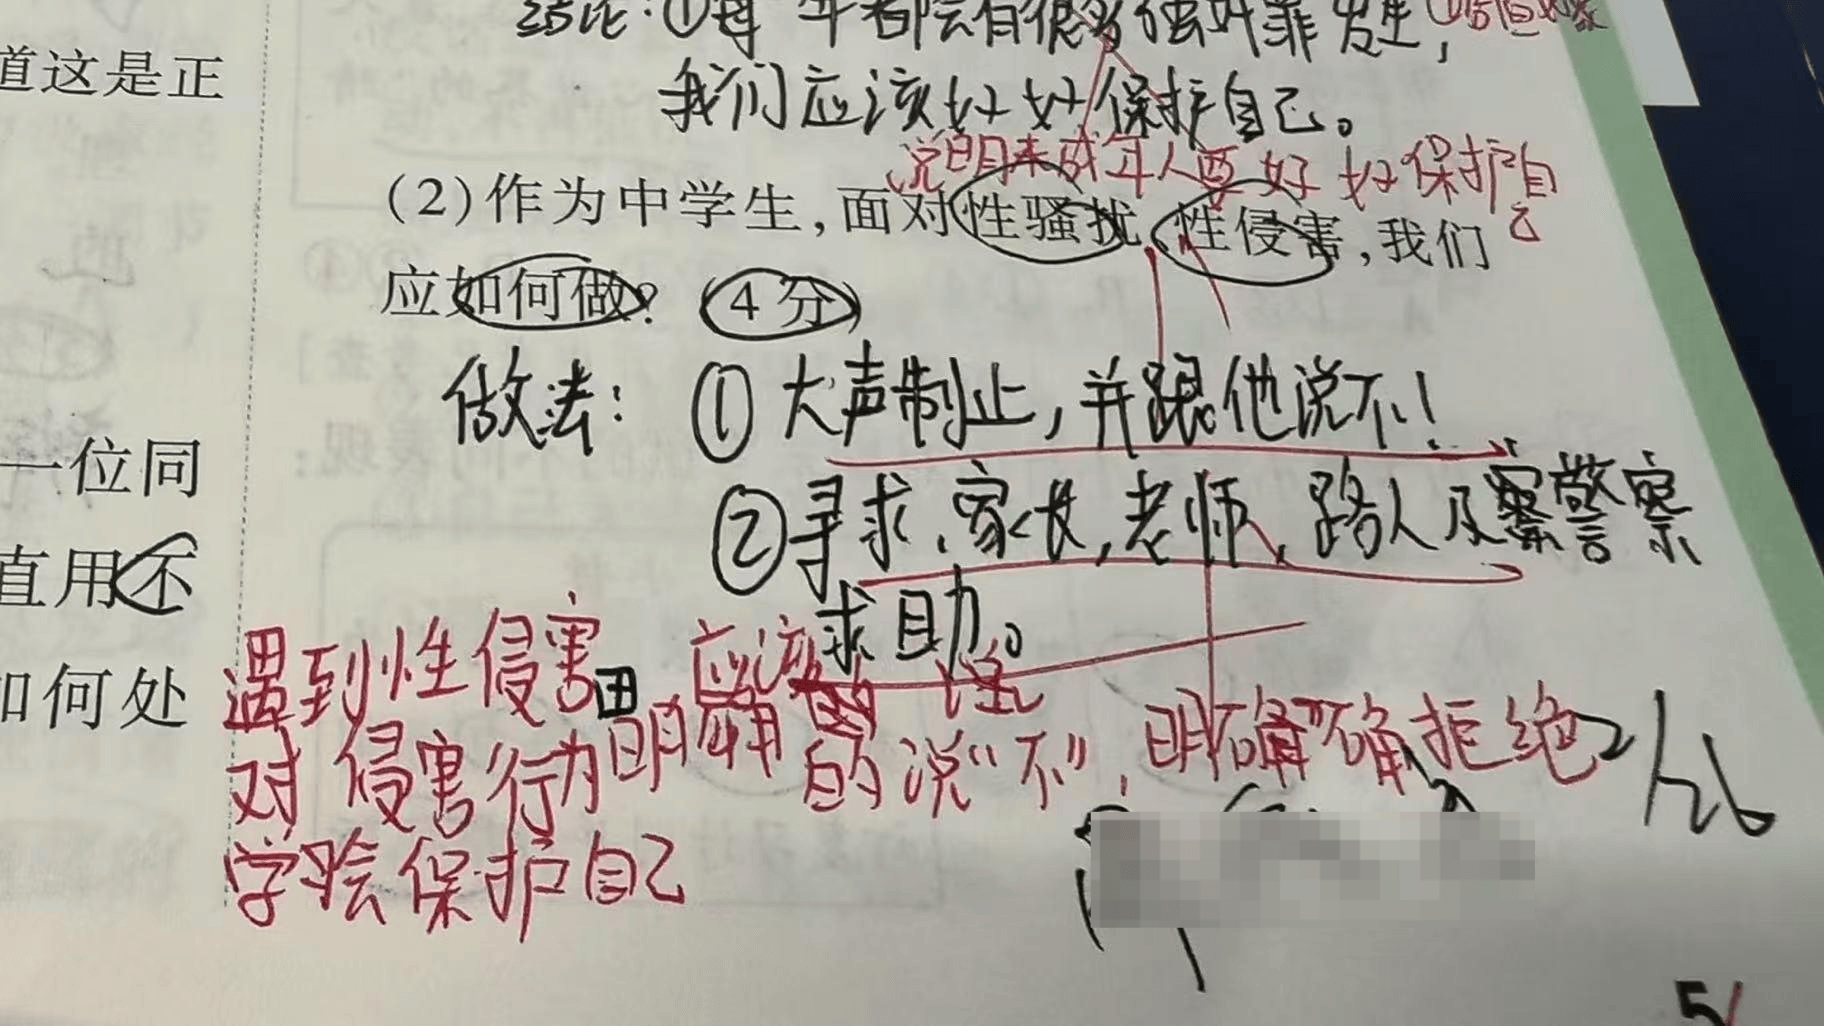 结论：①每年都会有很多强奸罪发生，
我们应该好好保护自己。
说明未成年人要好好保护自己
道这是正
(2)作为中学生，面对性骚扰、性侵害，我们
应如何做？(4分)
做法：①大声制止，并跟他说不！
②寻求、家长，老师、路人及警察
求助。
一位同
直用不
如何处
遇到性侵害 应该
对侵害行为明确的说“不”，明确拒绝
学会保护自己
5